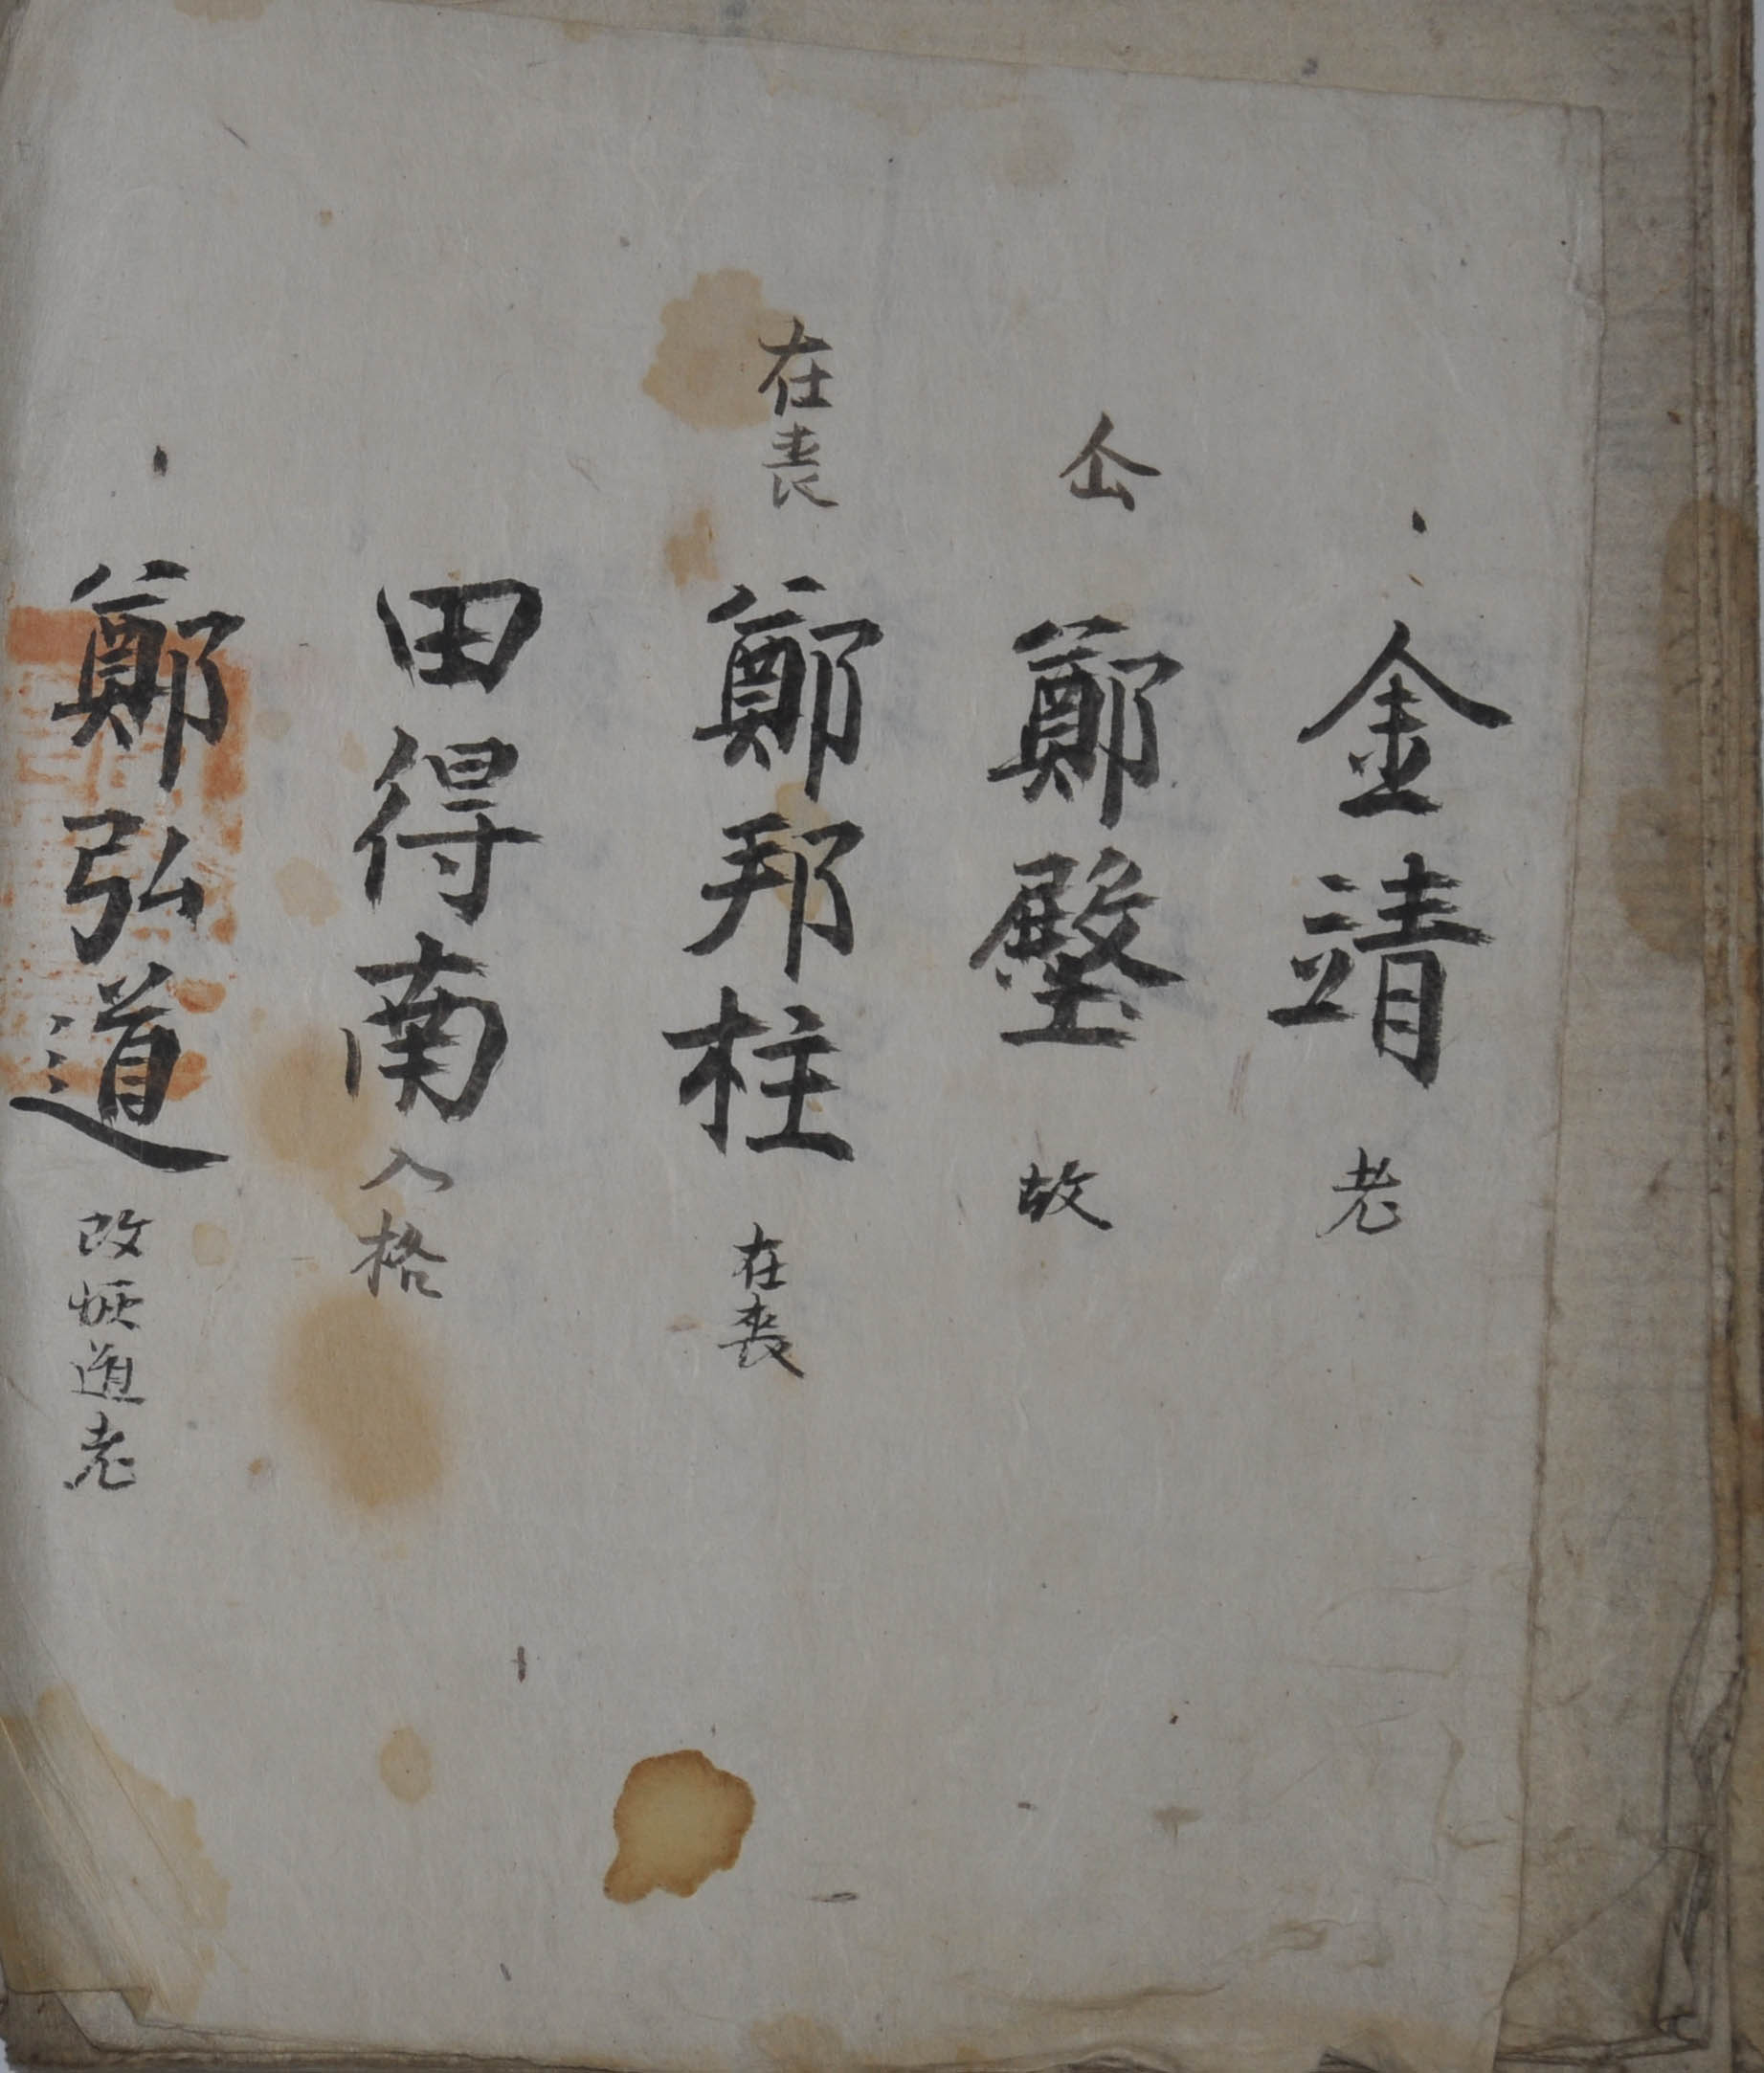 金靖 老
仚 鄭壂 故
在喪 鄭邦柱 在喪
田得南 入格
鄭弘道 改恢道老